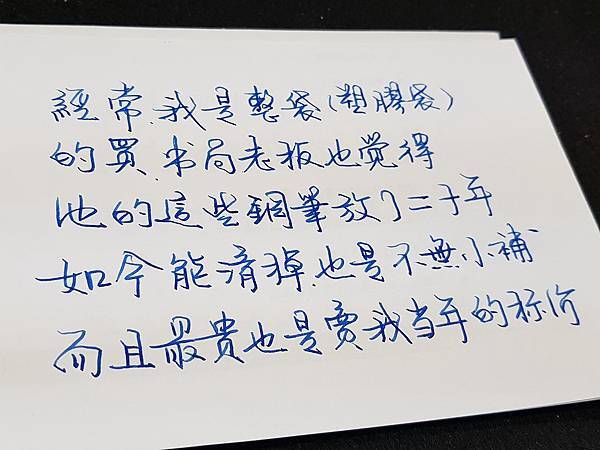 經常.我是整袋(塑膠袋)
的買.书局老板也觉得
他的這些鋼筆放了二十年
如今能清掉.也是不無小補
而且最貴也是賣我当年的标价